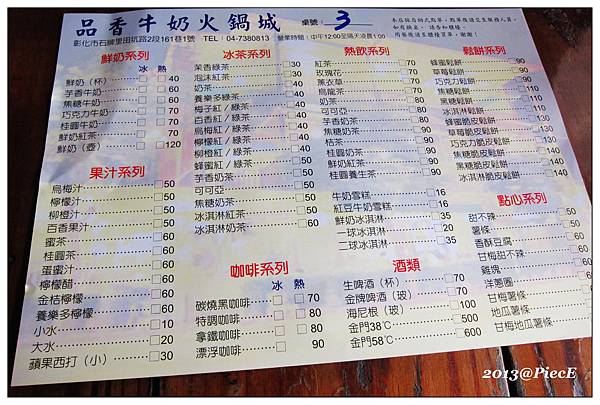 品香牛奶火鍋城 桌號: 3
彰化市石牌里田坑路2段161巷1號 TEL:04-7380813 營業時間:中午12:00至隔天凌晨1:00
鮮奶系列
冰 熱
鮮奶(杯) 40
芋香牛奶 60
焦糖牛奶 60
巧克力牛奶 60
桂圓牛奶 70
鮮奶紅茶 70
鮮奶(壺) 120
果汁系列
烏梅汁 50
檸檬汁 50
柳橙汁 50
百香果汁 50
蜜茶 50
桂圓茶 50
蛋蜜汁 50
檸檬醋 50
金桔檸檬 60
養樂多檸檬 60
小水 10
大水 20
蘋果西打(小) 30
冰茶系列
茉香綠茶 30
泡沫紅茶 30
奶茶 40
養樂多綠茶 40
梅子紅/綠茶 40
百香紅/綠茶 40
烏梅紅/綠茶 40
檸檬紅/綠茶 40
柳橙紅/綠茶 40
蜂蜜紅/綠茶 40
芋香奶茶 50
可可亞 50
焦糖奶茶 50
冰淇淋紅茶 50
冰淇淋奶茶 60
咖啡系列
冰 熱
碳燒黑咖啡 70
特調咖啡 80
拿鐵咖啡 80
漂浮咖啡 90
熱飲系列
紅茶 70
玫瑰花 70
薰衣草 70
烏龍茶 70
奶茶 70
可可亞 80
芋香奶茶 80
焦糖奶茶 90
桔茶 90
桂圓奶茶 90
鮮奶紅茶 90
桂圓養生茶 90
牛奶雪糕 16
紅豆牛奶雪糕 16
鮮奶冰淇淋 35
一球冰淇淋 20
二球冰淇淋 35
酒類
生啤酒(杯) 70
金牌啤酒(玻) 70
海尼根(玻) 100
金門38℃ 500
金門58℃ 600
鬆餅系列
蜂蜜鬆餅 90
草莓鬆餅 90
巧克力鬆餅 90
焦糖鬆餅 90
黑糖鬆餅 90
冰淇淋鬆餅 110
蜂蜜脆皮鬆餅 130
草莓脆皮鬆餅 130
巧克力脆皮鬆餅 130
焦糖脆皮鬆餅 140
黑糖脆皮鬆餅 140
冰淇淋脆皮鬆餅 140
點心系列
甜不辣 50
薯條 50
香酥豆腐 60
甘梅甜不辣 60
雞塊
洋蔥圈
甘梅薯條
地瓜薯條
甘梅地瓜薯條
2013@PiecE